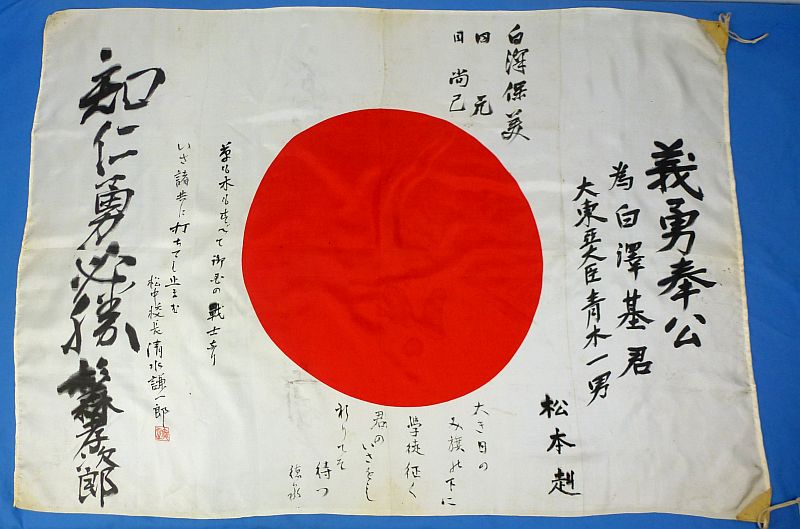 義勇奉公
為白澤基君
大東亜大臣青木一男
松本赳
白澤保美
同 元
同 尚己
大き日の
み旗の下に
学徒征く
君のいさをし
祈りてそ
待つ
徳永
草も木もすべて御国の戦士なり
いざ諸共に打ちてし止まむ
松中校長 清水謙一郎
知仁勇必勝
孝次郎